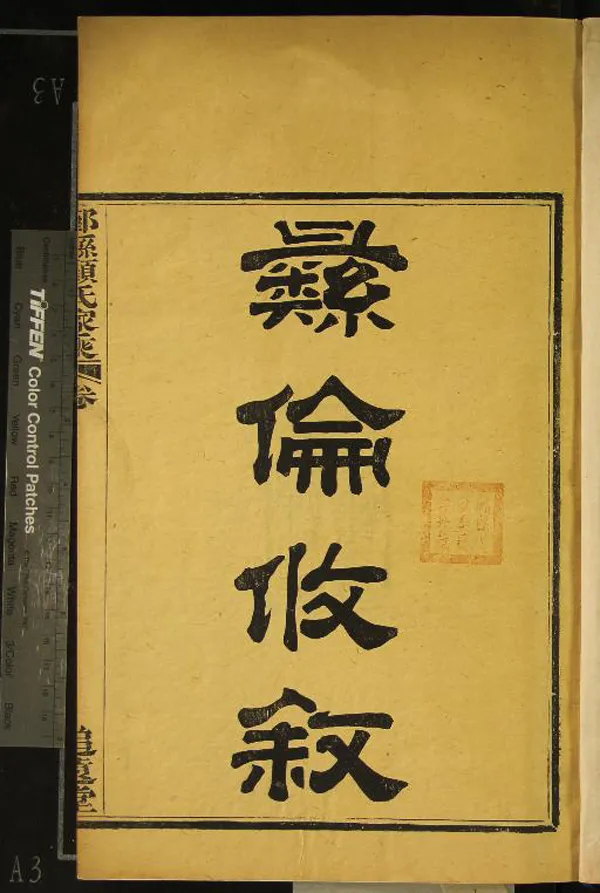 彝倫攸敘
氏
卷
堂
TIFFEN Color Control Patches
Blue Cyan Green Yellow Red Magenta White 3/Color Black
Centimetres
A3
A3